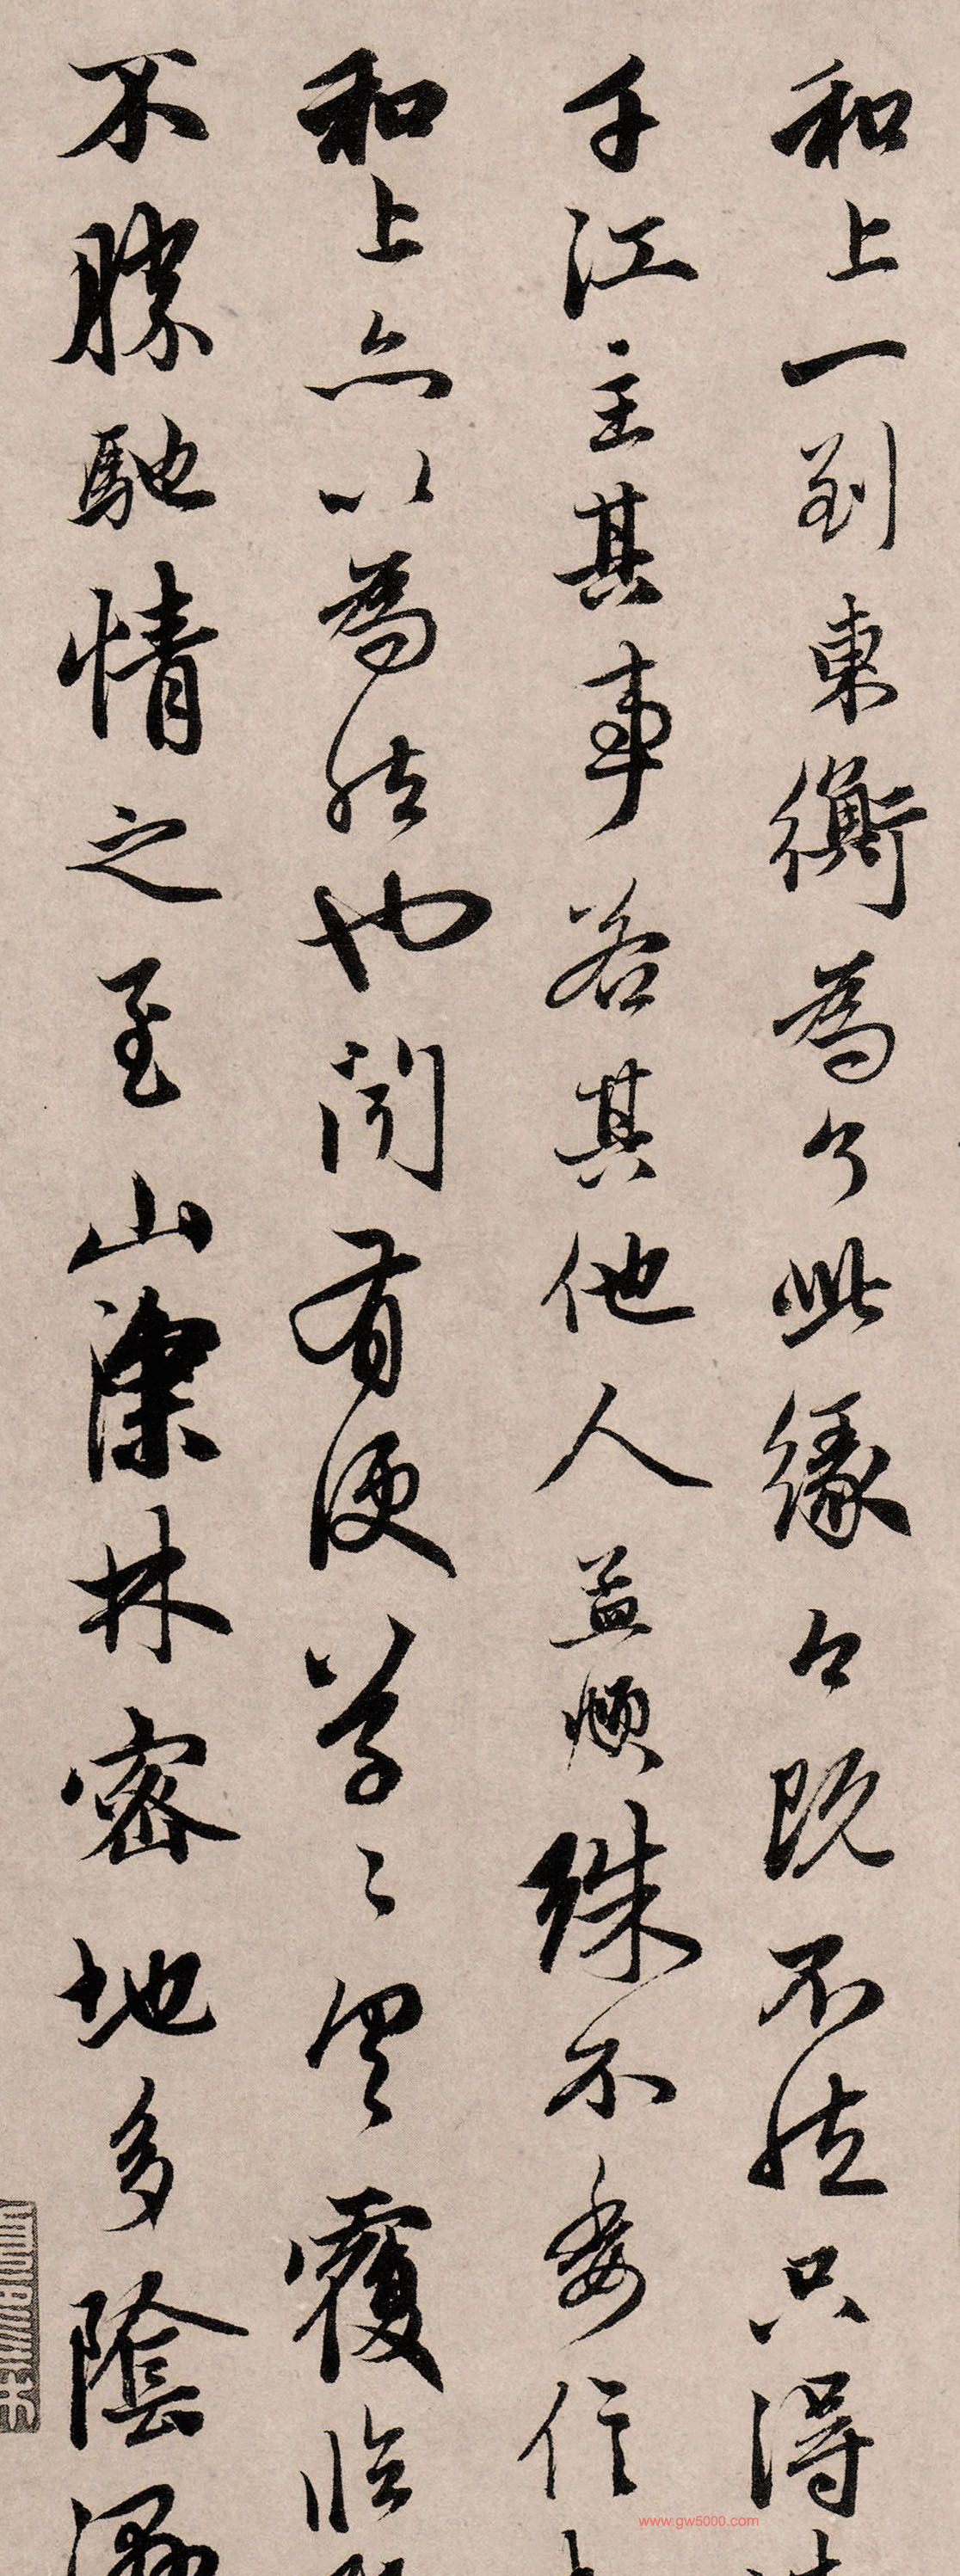 和上一到東衡為了此緣今既不然只得
千江主其事若其他人益順殊不委信
和上亦以為然也聞有便草々具覆臨
不勝馳情之至山深林密地多陰濕
www.gw5000.com